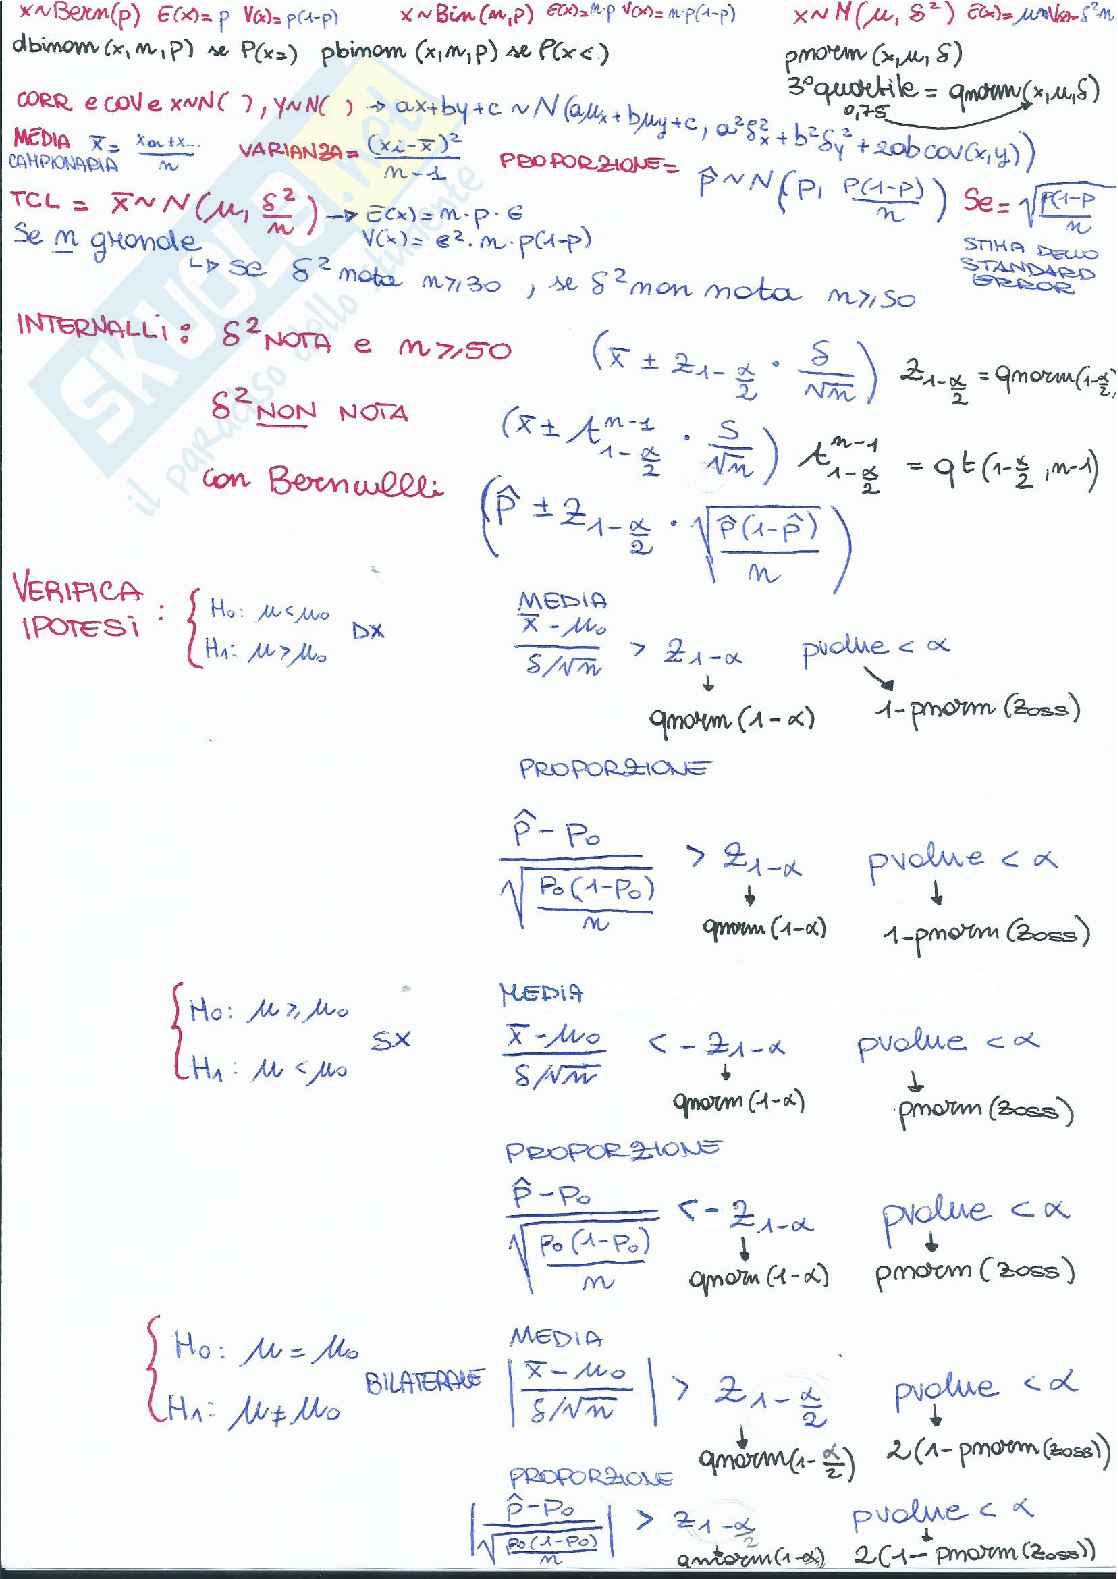 x~Bern(p) E(x)=p V(x)=p(1-p) x~Bin(n,p) E(x)=n·p V(x)=n·p(1-p) x~N(μ, δ²) E(x)=μ
dbinom(x,n,p) se P(x=) pbinom(x,n,p) se P(x<) pnorm(x,μ,δ)
3° quartile = qnorm(x,μ,δ)
0,75
CORR e COV e x~N( ), y~N( ) → ax+by+c ~ N(aμx+bμy+c, a²δx²+b²δy²+2ab cov(x,y))
MEDIA CAMPIONARIA x̄ = n VARIANZA = (xi-x̄)²/n-1 PROPORZIONE = p̂~N(p, p(1-p)/n) Se = √(p(1-p)/n
TCL = x̄~N(μ, δ²/n) → E(x)=n·p·€
Se n grande V(x)=€²·n·p(1-p)
STIMA DELLO STANDARD ERROR
↳ se δ² nota n≥30, se δ² non nota n≥50
INTERNALLI: δ² NOTA e n≥50 (x̄ ± z1-α/2 · δ/√n) z1-α/2 = qnorm(1-α/2,
δ² NON NOTA (x̄ ± t^n-1 1-α/2 · S/√n) t^n-1 1-α/2 = qt(1-α/2, n-1)
con Bernulli (p̂ ± z1-α/2 · √(p̂(1-p̂)/n))
VERIFICA IPOTESI: { H0: μ<μ0 H1: μ>μ0 DX
MEDIA
x̄-μ0 / δ/√n > z1-α pvalue < α
qnorm(1-α) 1-pnorm(zoss)
PROPORZIONE
p̂-p0 / √(p0(1-p0)/n) > z1-α pvalue < α
qnorm(1-α) 1-pnorm(zoss)
{ H0: μ≥μ0 H1: μ<μ0 SX
MEDIA
x̄-μ0 / δ/√n < -z1-α pvalue < α
qnorm(1-α) pnorm(zoss)
PROPORZIONE
p̂-p0 / √(p0(1-p0)/n) < -z1-α pvalue < α
qnorm(1-α) pnorm(zoss)
{ H0: μ=μ0 H1: μ≠μ0 BILATERALE
MEDIA
|x̄-μ0 / δ/√n| > z1-α/2 pvalue < α
qnorm(1-α/2) 2(1-pnorm(zoss))
PROPORZIONE
|p̂-p0 / √(p0(1-p0)/n)| > z1-α/2 pvalue < α
qnorm(1-α) 2(1-pnorm(zoss))
SKUOLA.net
il paradiso dello studente